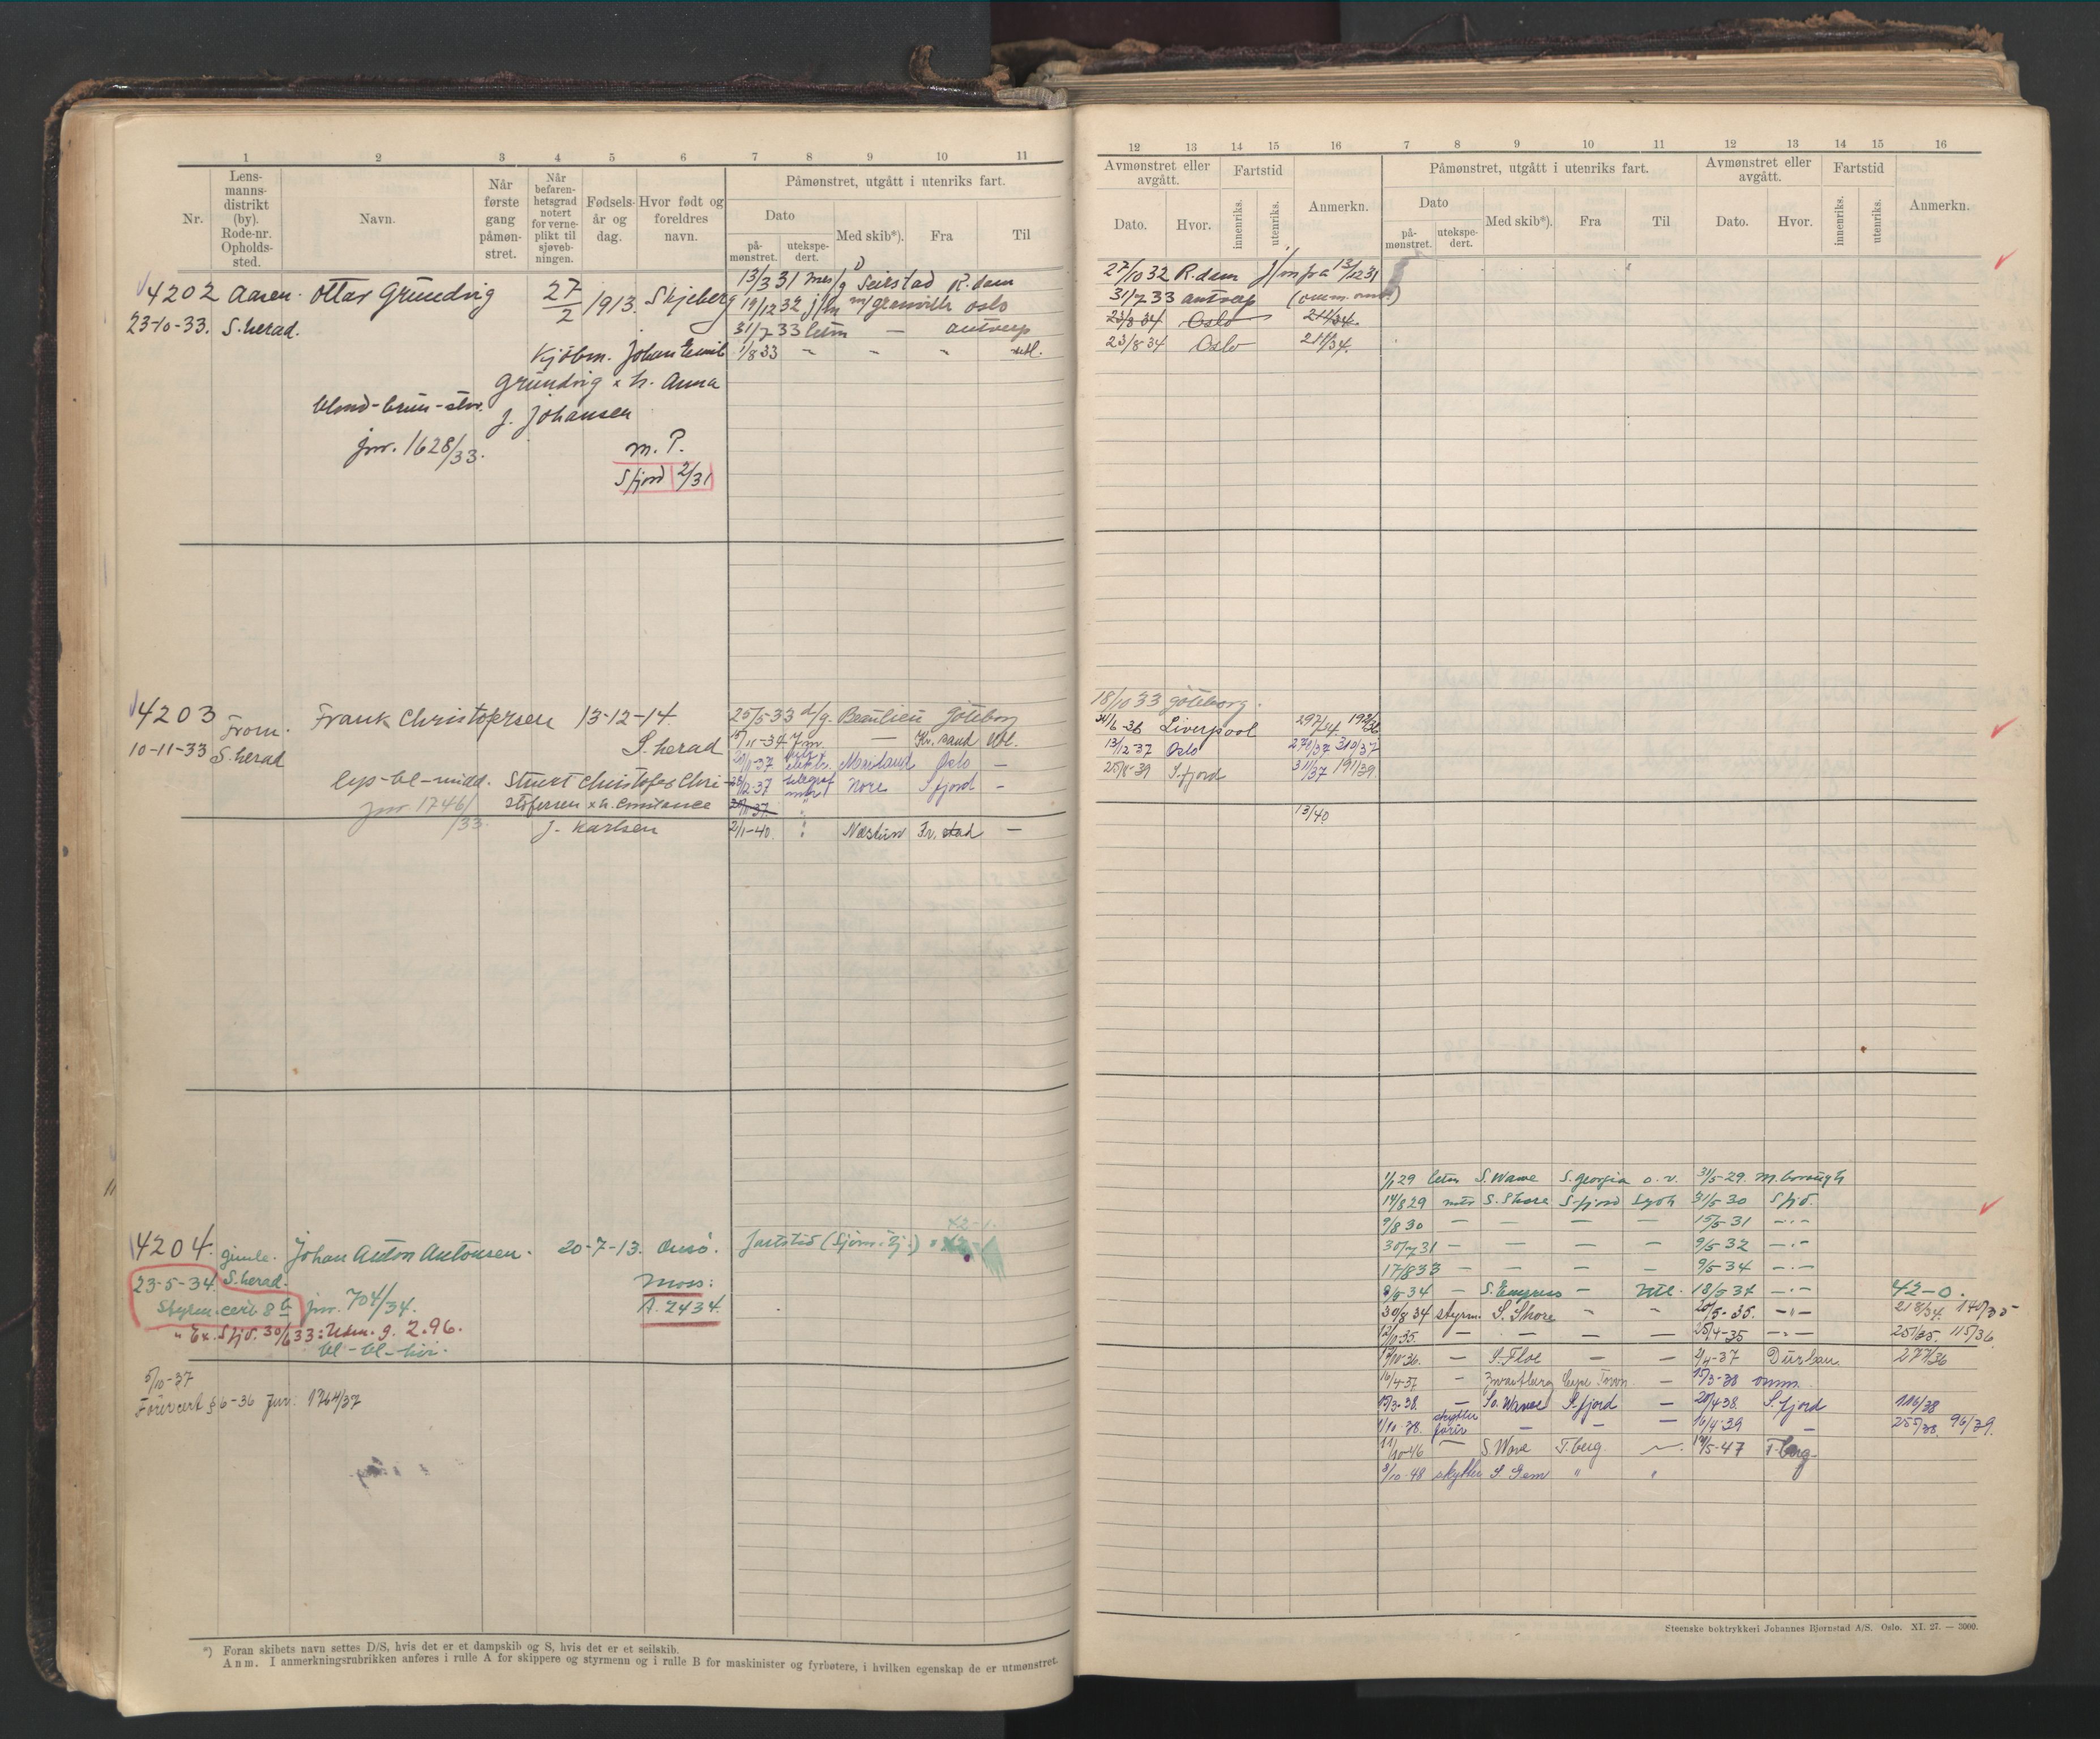 1 2 3 4 5 6 7 8 9 10 11
Nr.
Lens-
manns-
distrikt
(by).
Rode-nr.
Opholds-
sted.
Navn.
Når
første
gang
påmøn-
stret.
Når
befaren-
hetsgrad
notert
for verne-
plikt til
sjøveb-
ningen.
Fødsels-
år og
dag.
Hvor født og
foreldres
navn.
Påmønstret, utgått i utenriks fart.
Dato
på-
mønstret.
utekspe-
dert.
Med skib*).
Fra
Til
4202 Aasen. Ottar Gründvig 27/2 1913. Skjeberg
23-10-33. S.herad.
Kjøbm. Johan Emil
Gründvig x h. Anna
blond-brun-stor. J. Johansen
jnr. 1628/33.
m. P.
Sfjord 2/31
13/3 31 mes/g Seirstad R.dam
19/12 32 j/m m/ Granville Oslo
31/7 33 letm — Antverp
1/8 33 " " " utl.
4203 From. Frank Christofersen 13-12-14.
10-11-33 S.herad S.herad
lys-bl-midd. Stuert Christofer Chri-
jnr. 1746/33. stofersen x h. Constance
J. Karlsen
25/5-33 d/g. Beaulieu Göteborg
11-34 J.m. — Kr.sand Utl.
11-37 Oslo —
12-37 telegraf Nore Sfjord -
2/1-40. Fr.stad —
4204. Gimle. Johan Anton Antonsen. 20-7-13. Onsö.
23-5-34. S.herad.
Styrm.cert 8 b jnr. 704/34.
" Ex. Sfjd. 30/6 33: Udm. g. 2.96.
bl-bl-høi.
Moss:
A. 2434.
Fartstid (Sjøm.
42-1.
5/10-37
Förercert § 6-36 Jnr. 1764/37
*) Foran skibets navn settes D/S, hvis det er et dampskib og S, hvis det er et seilskib.
Anm. I anmerkningsrubrikken anføres i rulle A for skippere og styrmenn og i rulle B for maskinister og fyrbøtere, i hvilken egenskap de er utmønstret.
12 13 14 15 16 7 8 9 10 11 12 13 14 15 16
Avmønstret eller
avgått.
Dato.
Hvor.
Fartstid
innenriks.
utenriks.
Anmerkn.
Påmønstret, utgått i utenriks fart.
Dato
på-
mønstret.
utekspe-
dert.
Med skib*).
Fra
Til
Avmønstret eller
avgått.
Dato.
Hvor.
Fartstid
innenriks.
utenriks.
Anmerkn.
27/10 32 R.dam J/m fra 13/12 31
31/7 33 Antverp
23/8 34 Oslo 211/34.
23/8 34 Oslo 211/34.
18/10 33 Göteborg.
Liverpool 297/34
13/12 37 Oslo 270/37 310/37
25/8-39 S.fjord 311/37 191/39.
13/40
1/1 29 letm S. Wave S.Georgia o.v. 31/5-29. M.borough
14/8 29 mtr S. Shore S-fjord Sydh 31/5 30 Sfjd.
9/8 30 — — — — 15/5 31 —"—
30/7 31 — — — — 9/5-32 —"—
17/8 33 — — — — 9/5-34 —"—
9/5-34 — S.Empress — Utl. 18/5 34 —"— 42-0.
30/8 34 styrm. S. Shore " " 20/5-35. —"— 218/34. 140/35
— — — — 25/4-35 —"— 251/35. 115/36
10-36. — S.Floe — — 2/4-37 Durban 277/36
16/4-37 — Cape Town — 15/3-38 omm.
15/3-38. — So. Waves S.fjord — 20/4-38. S.fjord 116/38
1/10-38. skytter — — — 16/4-39 — 255/38. 96/39.
11/10-46 — S. Wave T.berg 5-47 T.berg
9/10-48 skytter S. Gem " "
Steenske boktrykkeri Johannes Bjørnstad A/S. Oslo. XI. 27. — 3000.